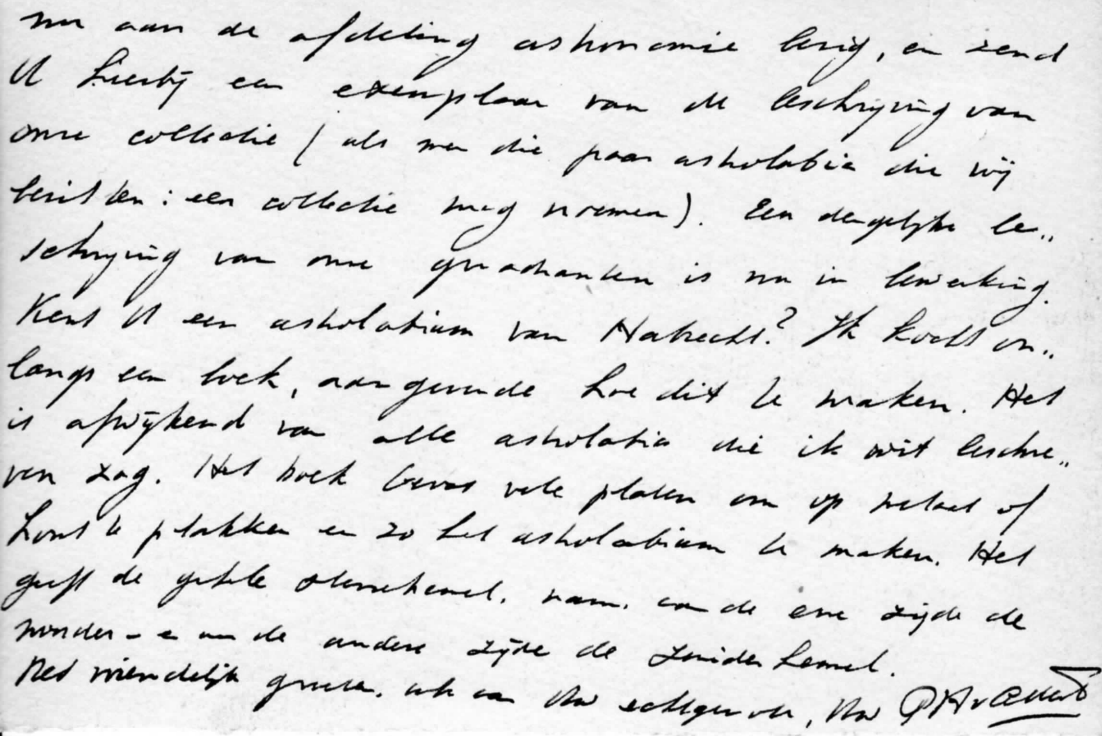 nu aan de afdeling astronomie bezig, en zend
U hierbij een exemplaar van de beschrijving van
onze collectie (als men die paar astrolabia die wij
bezitten: een collectie mag noemen). Een dergelijke be„
schrijving van onze quadranten is nu in bewerking.
Kent U een astrolabium van Habrecht? Ik kocht on„
langs een boek, aangevende hoe dit te maken. Het
is afwijkend van alle astrolabia die ik ooit beschre„
ven zag. Het boek bevat vele platen om op metaal of
hout te plakken en zo het astrolabium te maken. Het
geeft de gehele sterrehemel, nam. aan de ene zijde de
noorder- en aan de andere zijde de zuider hemel.
Met vriendelijke groeten, ook aan Uw echtgenote, Uw